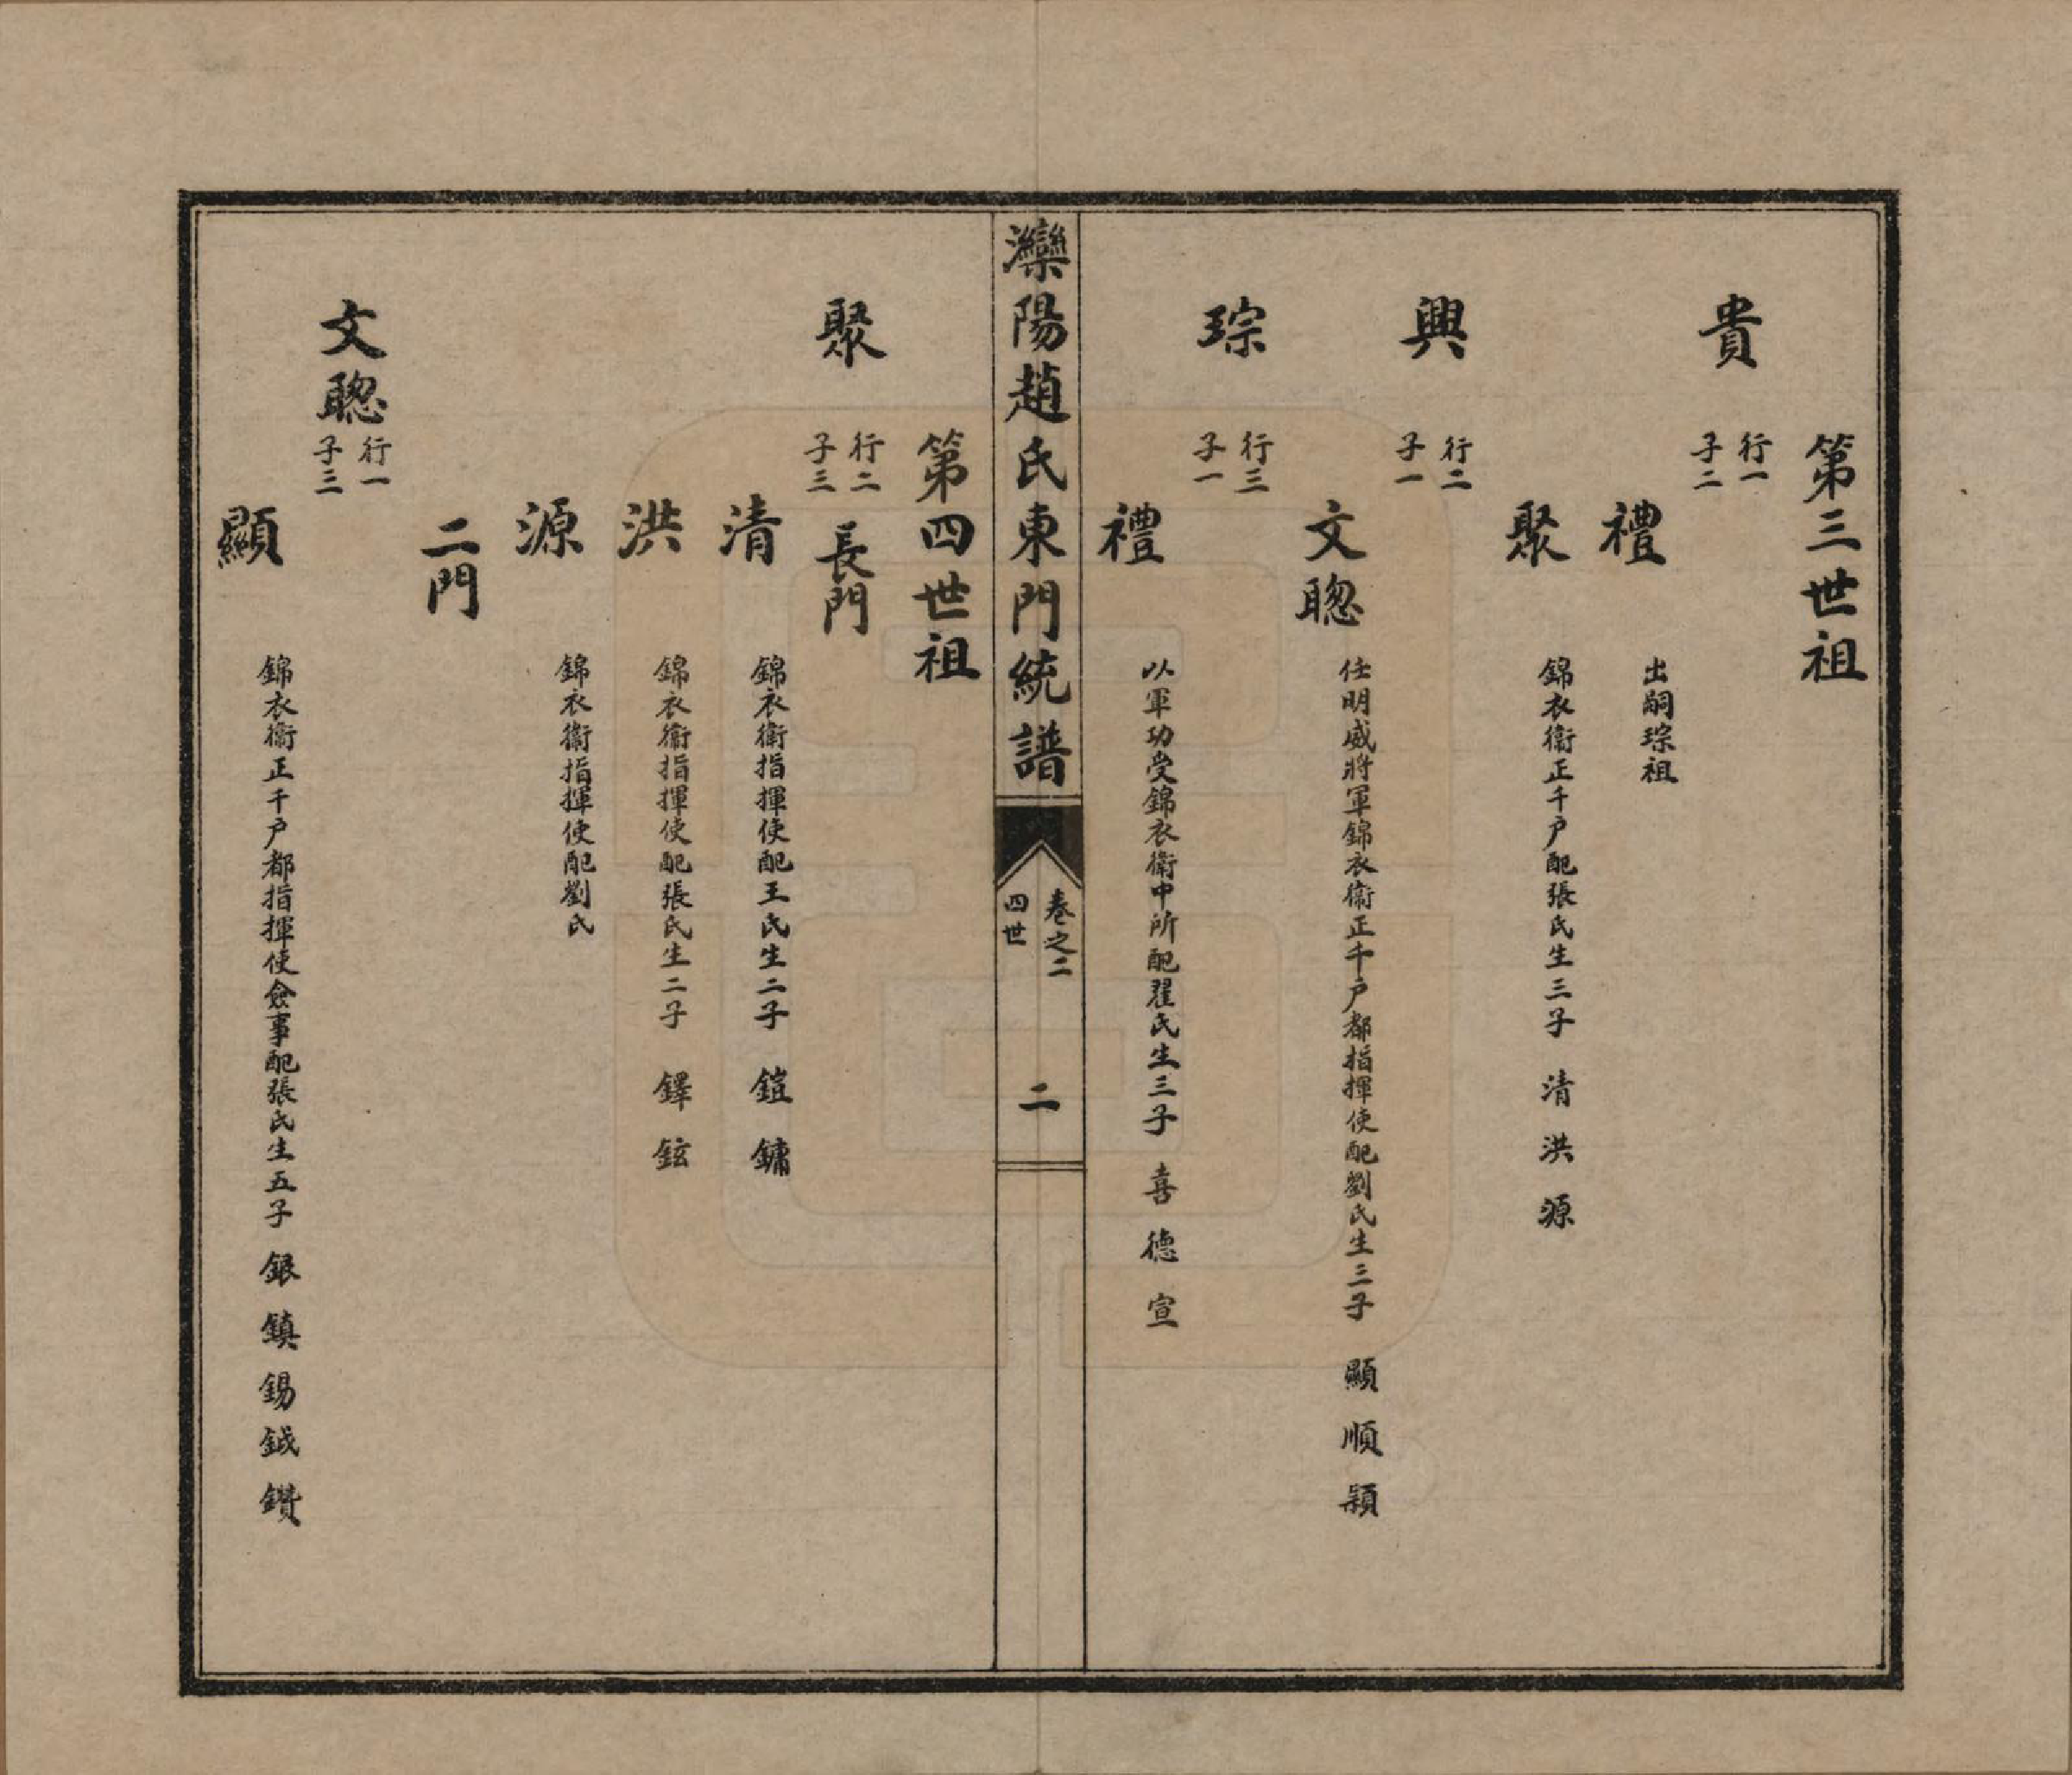 第三世祖
貴
行一
子二
禮
出嗣琮祖
聚
錦衣衛正千户配張氏生三子 清 洪 源
興
行二
子一
文聰
任明威將軍錦衣衛正千户都指揮使配劉氏生三子 顯 順 頴
琮
行三
子一
禮
以軍功受錦衣衛中所配翟氏生三子 喜 德 宣
灤陽趙氏東門統譜
卷之二
四世
二
第四世祖
聚
行二
子三
長門
清
錦衣衛指揮使配王氏生二子 鎧 鏞
洪
錦衣衛指揮使配張氏生二子 鐸 鉉
源
錦衣衛指揮使配劉氏
二門
文聰
行一
子三
顯
錦衣衛正千户都指揮使僉事配張氏生五子 銀 鎮 錫 鉞 鑽